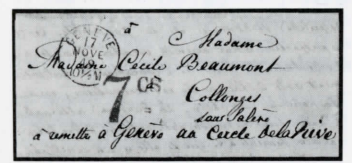 GENÈVE
17
NOVE
10½ M
7 CS
à
Madame
Madame Cécile Beaumont
à
Collonges
sous Salève
à remettre à Genève au Cercle de la Rive